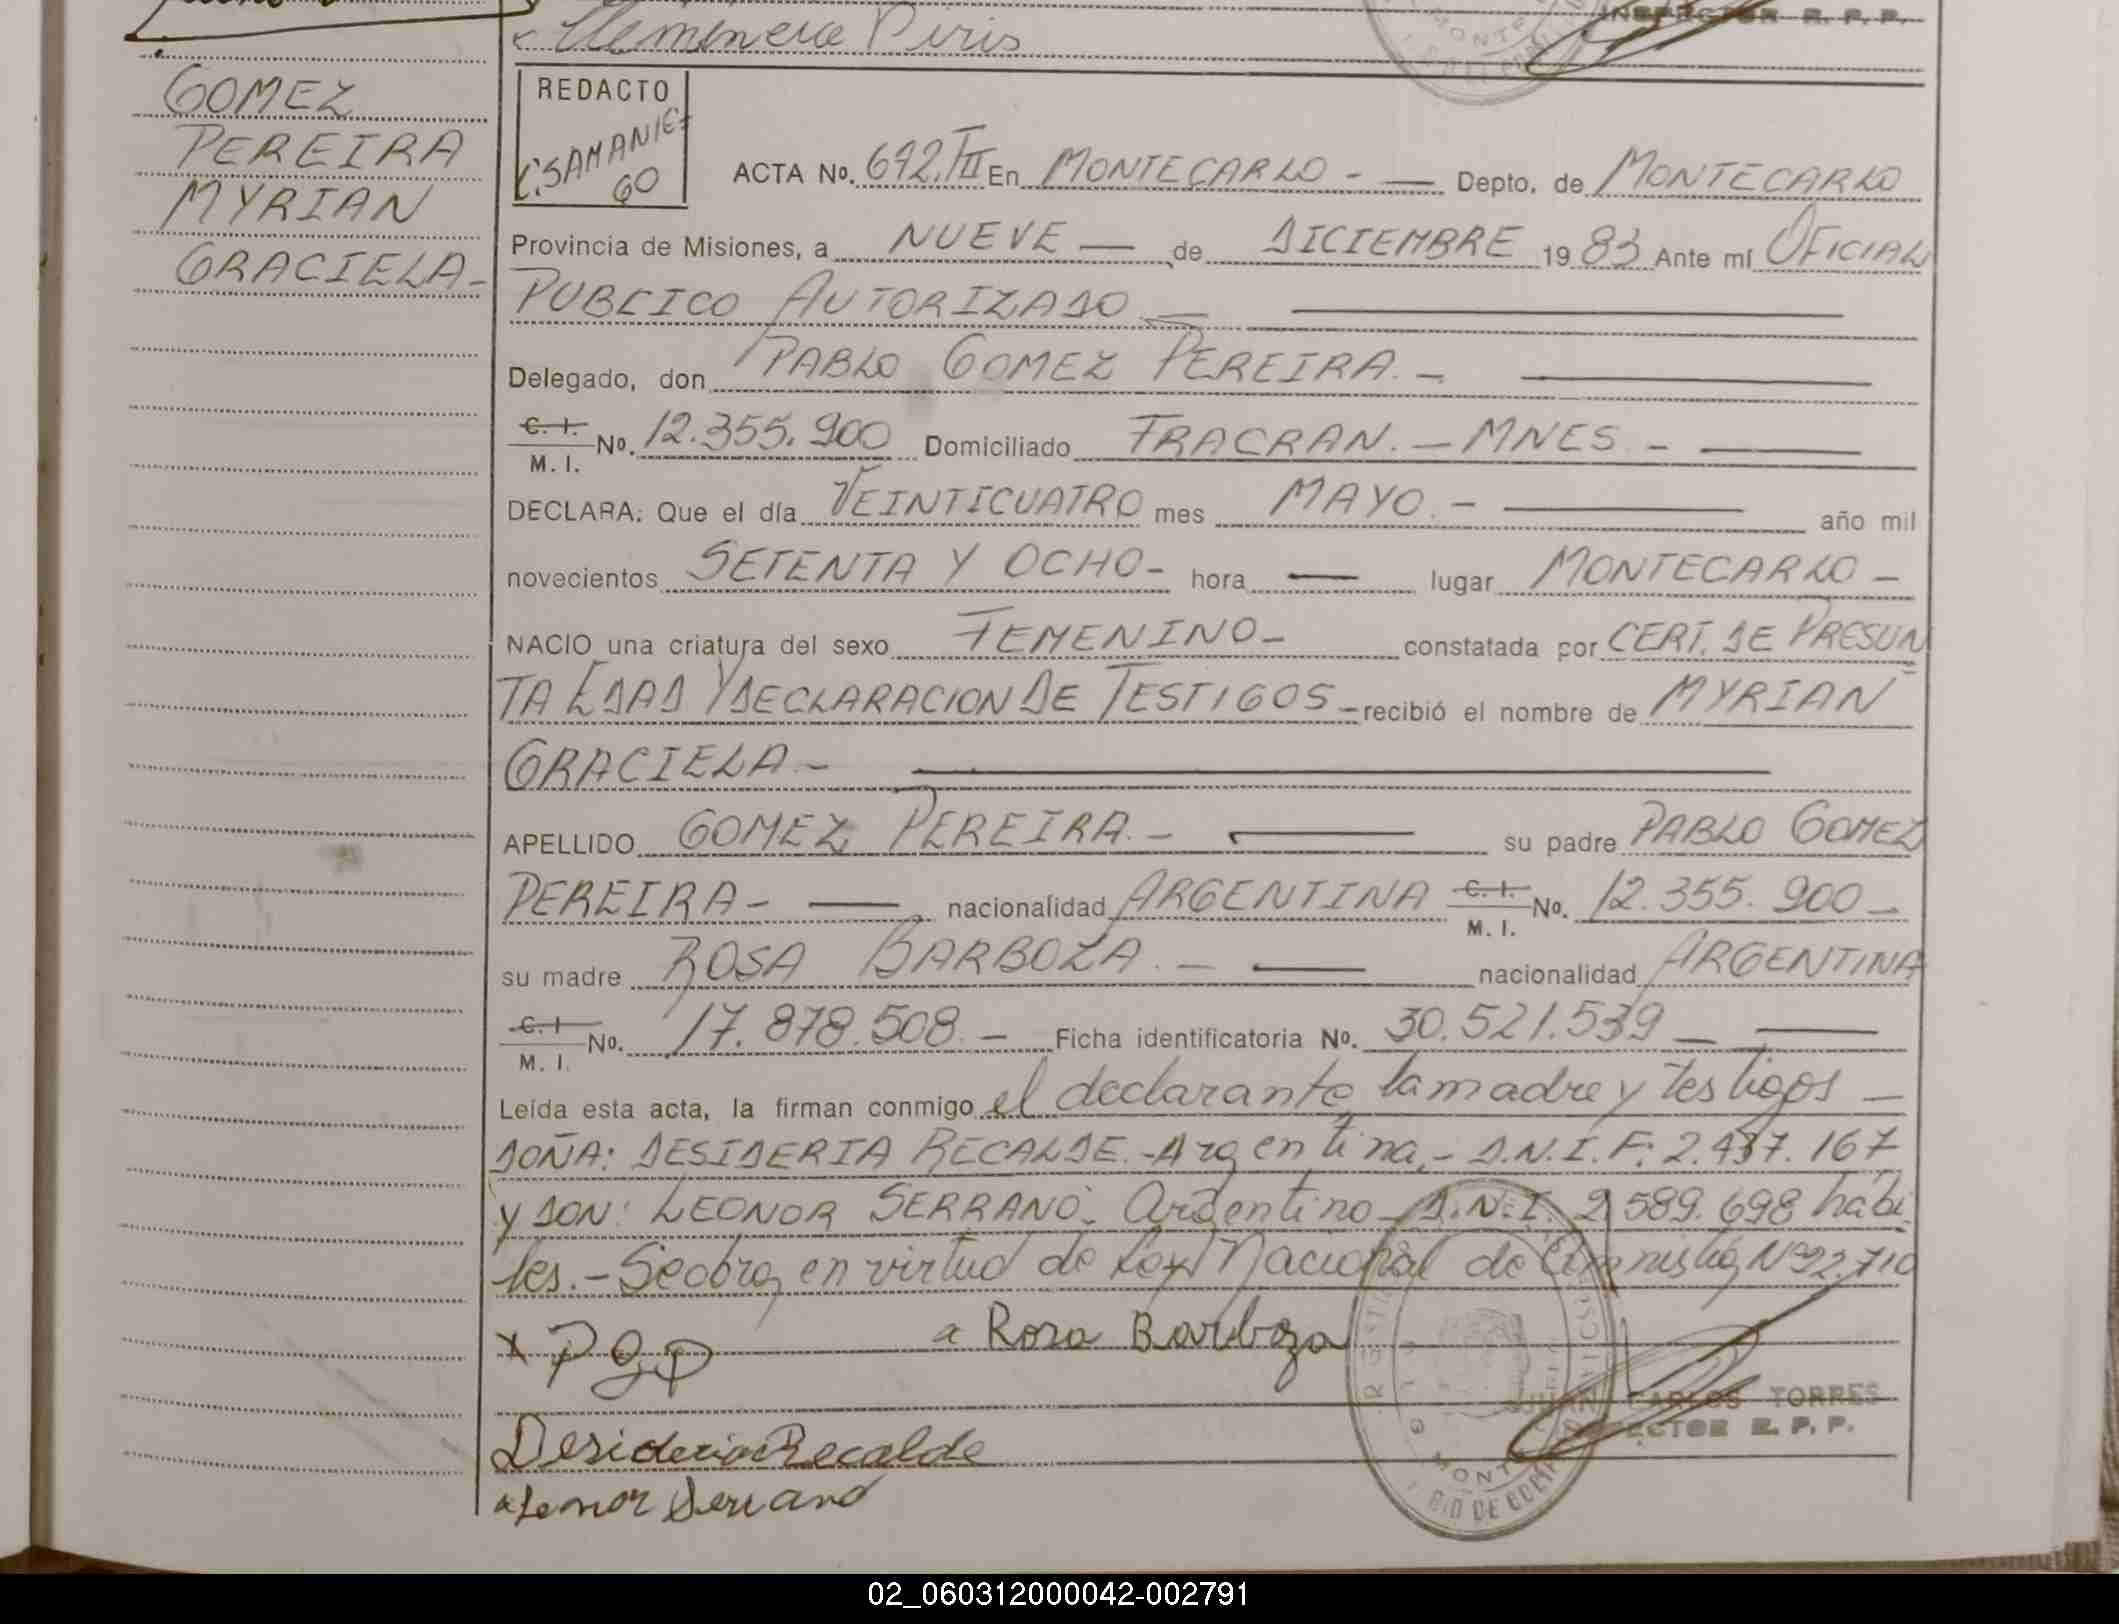 Clemencia Piris
INSPECTOR R. P. P.
GOMEZ
PEREIRA
MYRIAN
GRACIELA-
REDACTO
C. SAMANIE=
GO
ACTA No. 692.TII En MONTECARLO - — Depto. de MONTECARLO
Provincia de Misiones, a NUEVE — de DICIEMBRE 1983 Ante mí OFICIAL
PUBLICO AUTORIZADO —
Delegado, don PABLO GOMEZ PEREIRA. -
C. I.
M. I. No. 12.355.900 Domiciliado FRACRAN. - MNES. -
DECLARA: Que el día VEINTICUATRO mes MAYO. - año mil
novecientos SETENTA Y OCHO- hora — lugar MONTECARLO -
NACIO una criatura del sexo FEMENINO- constatada por CERT. DE PRESUN
TA EDAD Y DECLARACION DE TESTIGOS - recibió el nombre de MYRIAN
GRACIELA. -
APELLIDO GOMEZ PEREIRA. - su padre PABLO GOMEZ
PEREIRA- — nacionalidad ARGENTINA C. I. M. I. No. 12.355.900 -
su madre ROSA BARBOZA. - — nacionalidad ARGENTINA
C. I. M. I. No. 17.878.508. - Ficha identificatoria No. 30.521.539 -
Leída esta acta, la firman conmigo el declarante, la madre y testigos -
DOÑA: DESIDERIA RECALDE.-Argentina.- D.N.I.F: 2.437.167
y DON: LEONOR SERRANO. Argentino - D.N.I. 2.589.698 hábi
les. - Se obra, en virtud de Ley Nacional de Amnistía Nº 22.710
x PGP
a Rosa Barboza
JUAN CARLOS TORRES
ECTOR R. P. P.
Desideria Recalde
Leonor Serrano
RIO DE
02_060312000042-002791